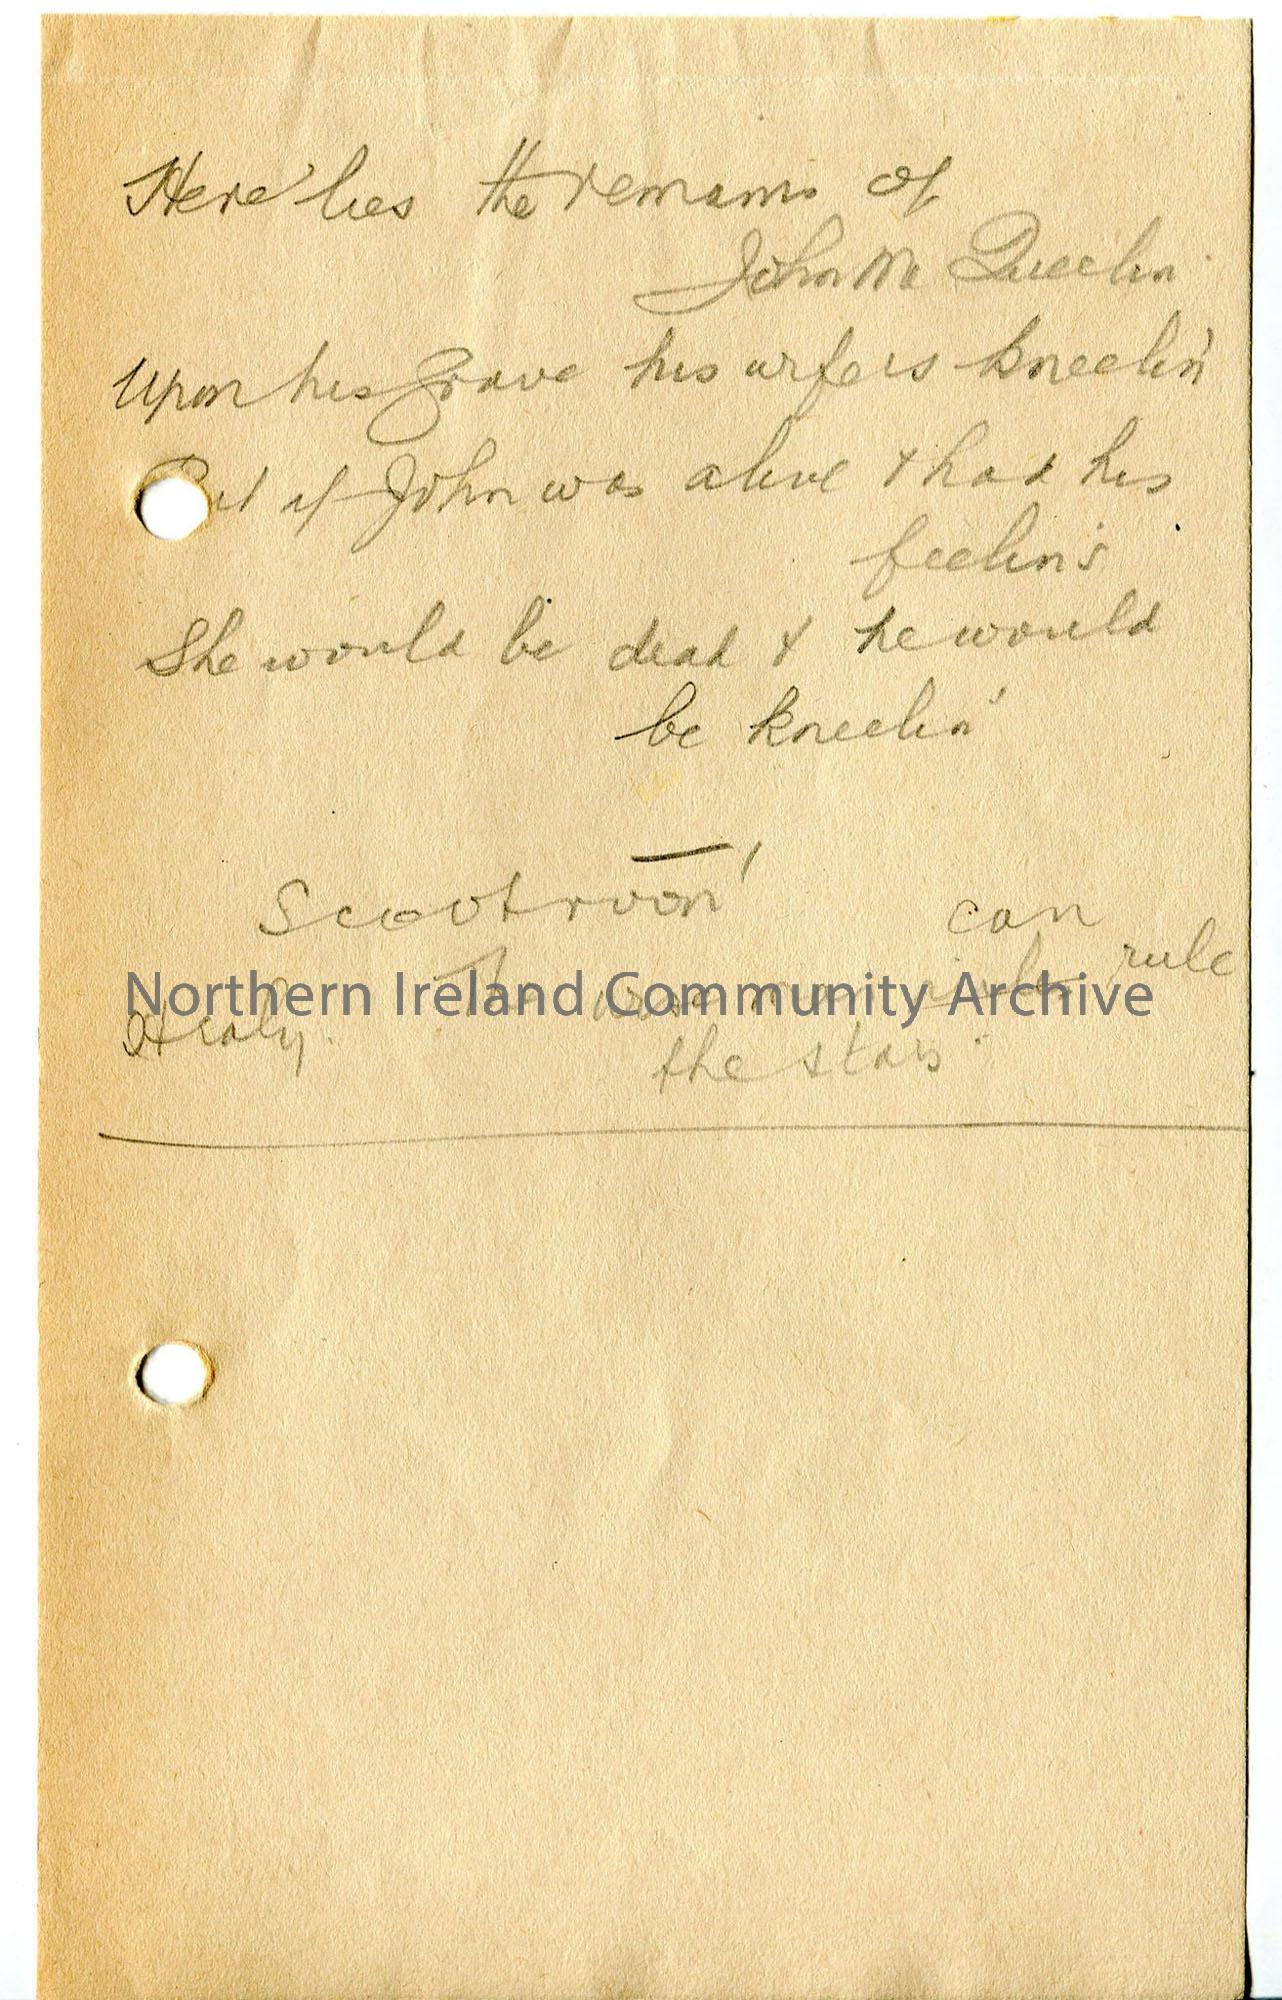 Here lies the remains of
John Mc Queelin
Upon his grave his wife is kneelin'
But if John was alive & had his
feelin's
She would be dead & he would
be kneelin'
Scootroon'
can
rule
Healy. The wise man
the stars.
Northern Ireland Community Archive